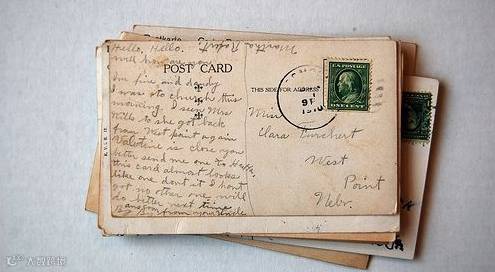 Postkarte
Hello, Hello.
well how are you
POST CARD
am fine and dandy
I was to church this
morning. I seen Mrs
Mills so she got back
from West Point again
Valentine is close you
better send me one to
this card almost looks
like one dont it I hant
got no other one will
do better next time
from your Uncle
THIS SIDE FOR ADDRESS
U.S. POSTAGE
ONE CENT
1910
Miss
Clara
West
Point
Nebr.
Martha